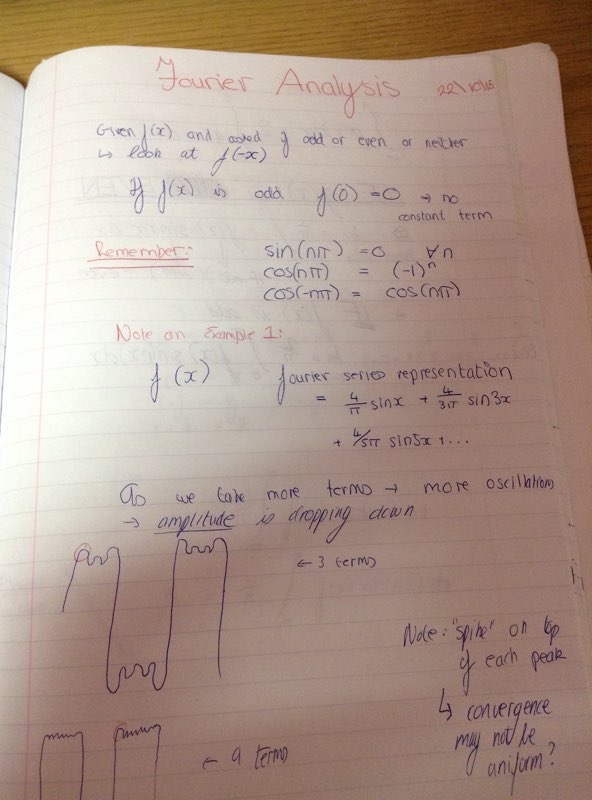 Fourier Analysis 22\10\15
Given f(x) and asked if odd or even or neither
↳ look at f(-x)
If f(x) is odd f(0) = 0 → no
constant term
Remember:
sin(nπ) = 0 ∀n
cos(nπ) = (-1)ⁿ
cos(-nπ) = cos(nπ)
Note on Example 1:
f(x) fourier series representation
= 4/π sinx + 4/3π sin3x
+ 4/5π sin5x + ...
As we take more terms → more oscillations
→ amplitude is dropping down
← 3 terms
Note: "spike" on top
of each peak
↳ convergence
may not be
uniform?
← 9 terms